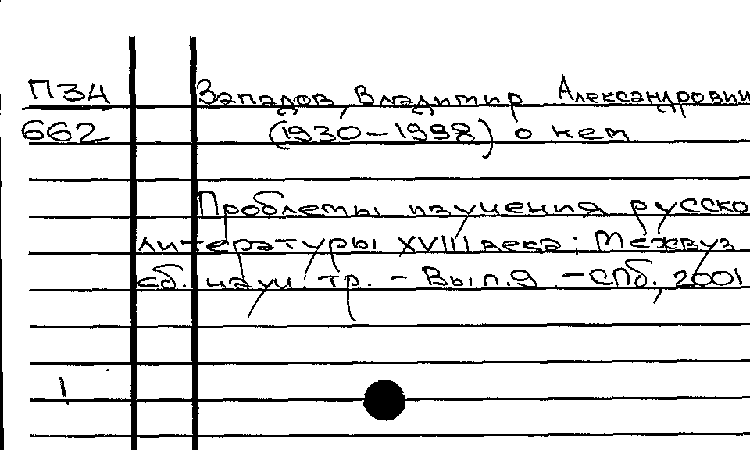 ПЗА Западов, Владимир Александрович
662 (1930-1998) о нем
Проблемы изучения русско
литературы XVIII века: Межвуз
сб. науч. тр. - Вып.9 - СПб, 2001